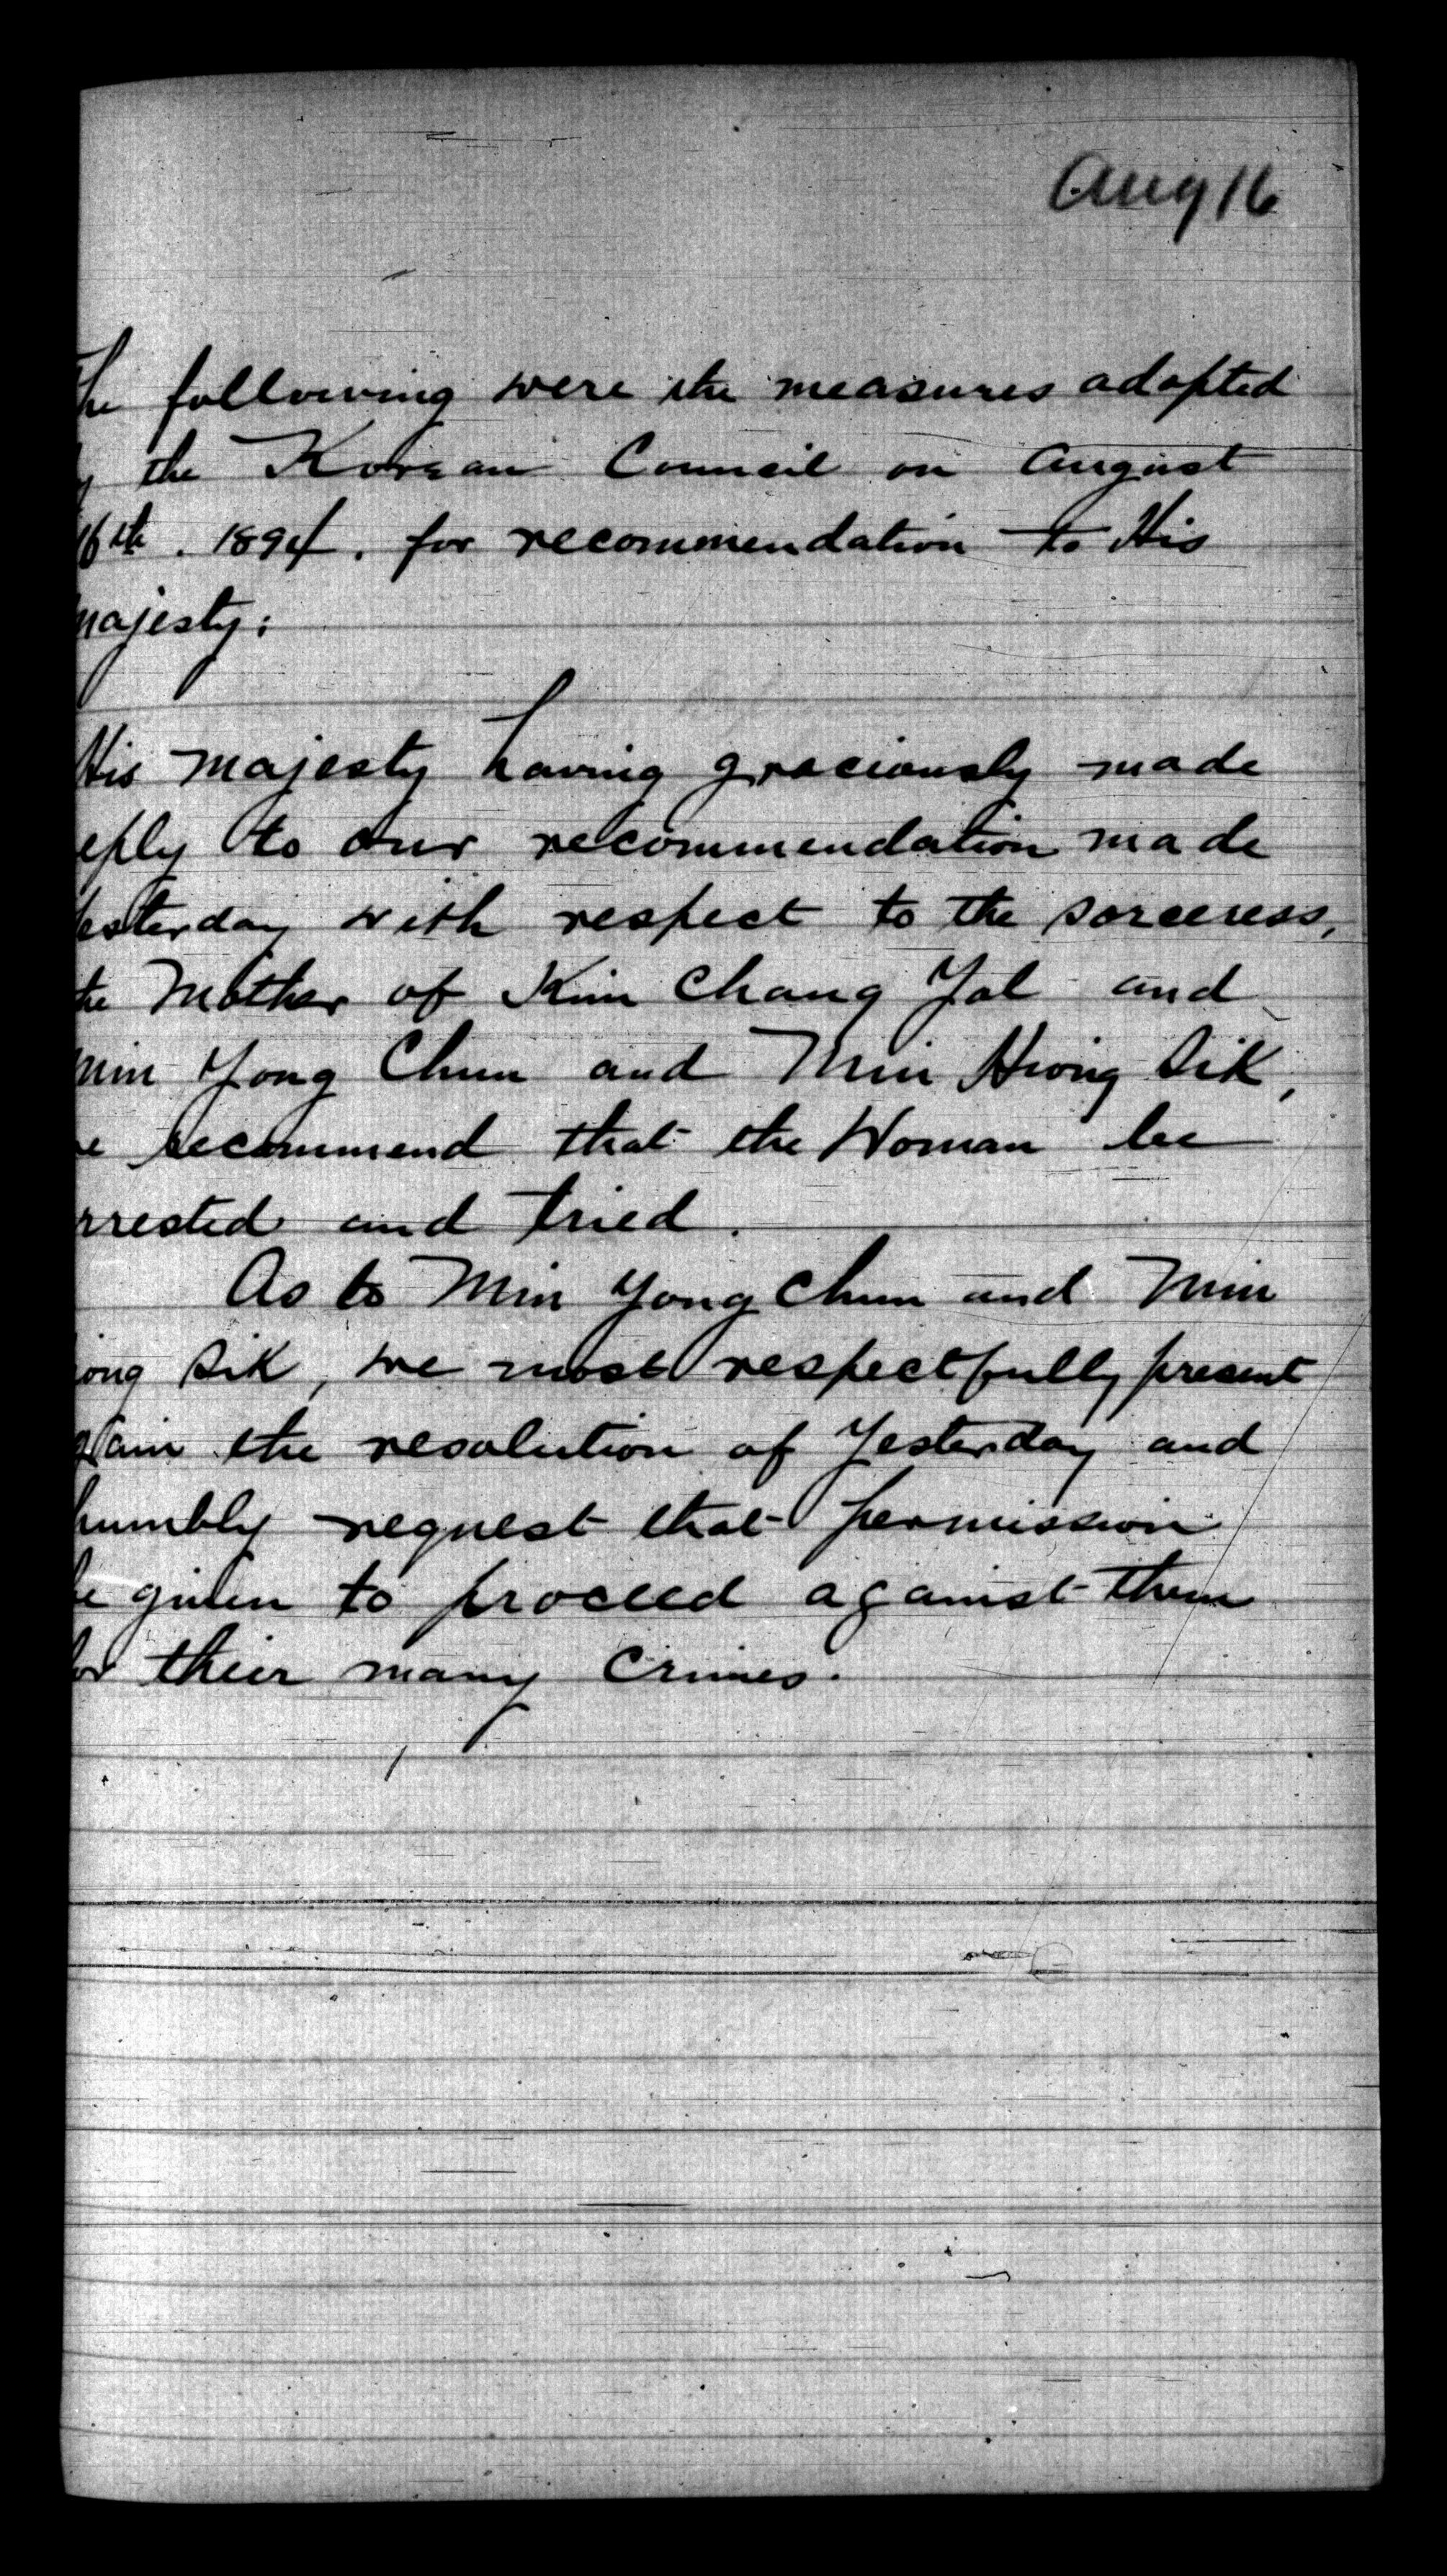 Aug 16
The following were the measures adopted
y the Korean Council on August
16th. 1894. for recommendation to His
majesty:
His majesty having graciously made
eply to our recommendation made
yesterday with respect to the sorceress,
the Mother of Kim Chang Yol and
Min Yong Chun and Min Hiong Sik,
e recommend that the Woman be
rrested and tried.
As to Min Yong Chun and Min
iong Sik, we most respectfully present
gain the resolution of Yesterday and
humbly request that permission
be given to proceed against them
for their many Crimes.